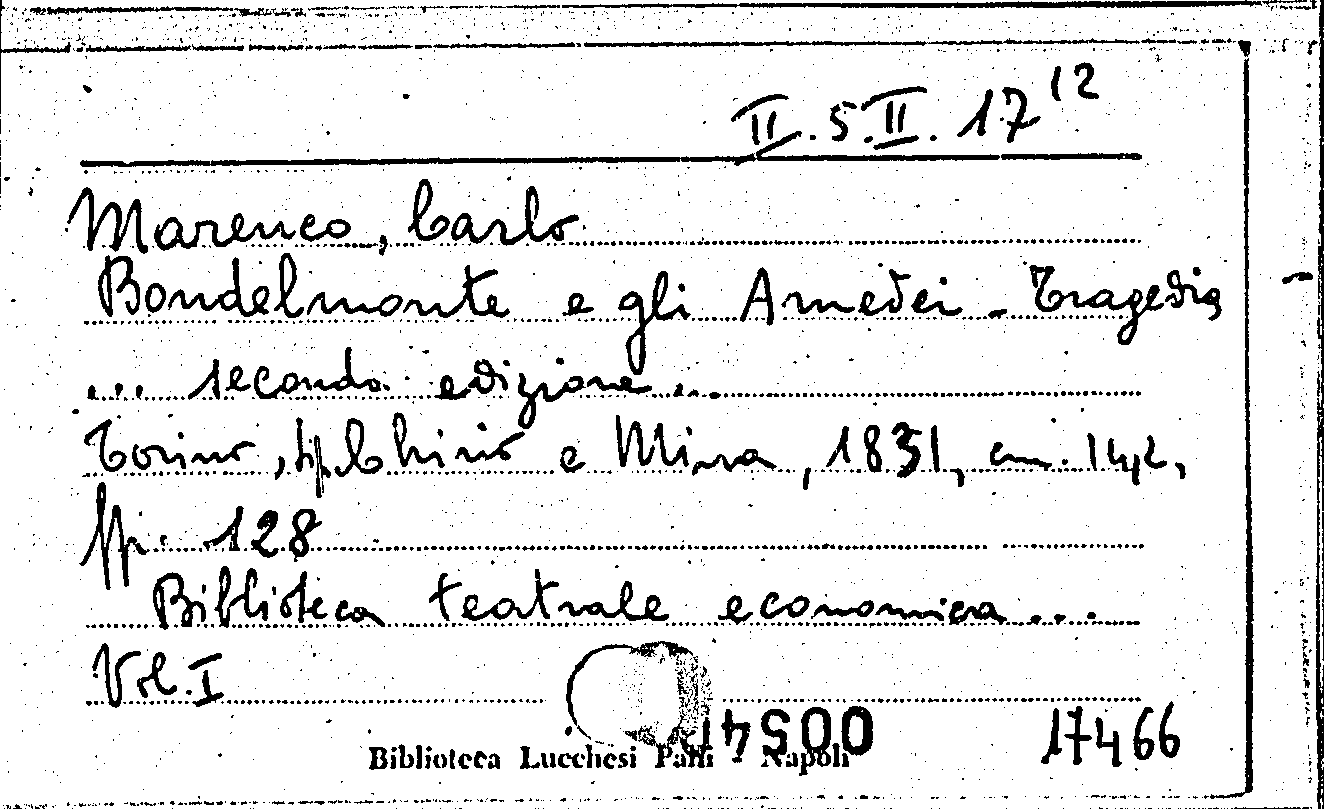 II. 5. II. 17 12
Marenco, Carlo
Bondelmonte e gli Amedei - Tragedia
... seconda edizione ...
Torino, tip. Chirio e Mina, 1831, cm. 14,2,
pp. 128
Biblioteca teatrale economica ...
Vol. I
17466
Biblioteca Lucchesi Palli - Napoli